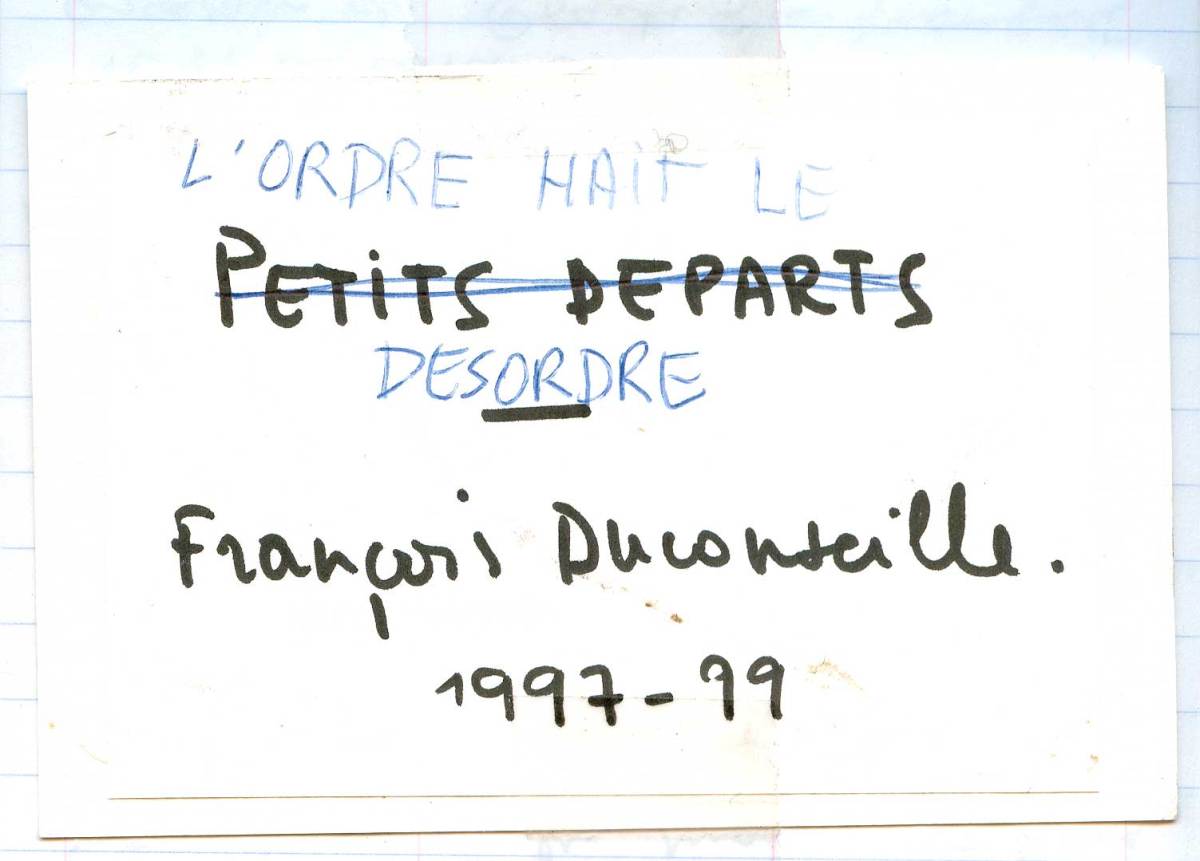 L'ORDRE HAIT LE
PETITS DEPARTS
DESORDRE
François Duconseille.
1997-99